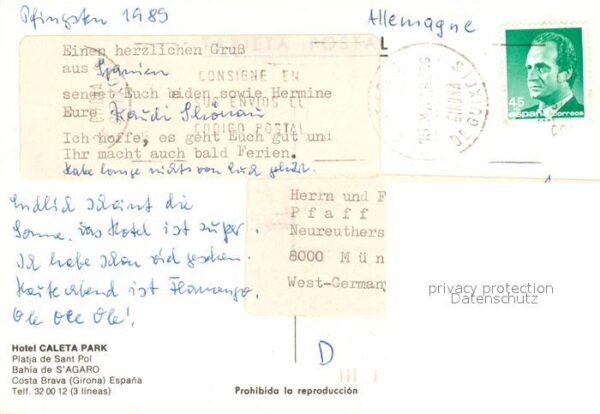 Pfingsten 1989
Allemagne
TARJETA POSTAL
Einen herzlichen Gruß
aus Spanien
sendet Euch beiden sowie Hermine
Eure
Ich hoffe, es geht Euch gut und
Ihr macht auch bald Ferien.
Habe lange nichts von Euch gehört.
CONSIGNE EN
SUS ENVIOS EL
CODIGO POSTAL
GIRONA
45
españa
Endlich scheint die
Sonne. Das Hotel ist super.
Ich habe schon viel gesehen.
Heute Abend ist Flamengo.
Ole Ole Ole!
Herrn und F
Pfaff
Neureuthers
8000 Mün
West-German
privacy protection
Datenschutz
D
Hotel CALETA PARK
Platja de Sant Pol
Bahía de S'AGARO
Costa Brava (Girona) España
Telf. 32 00 12 (3 líneas)
Prohibida la reproducción